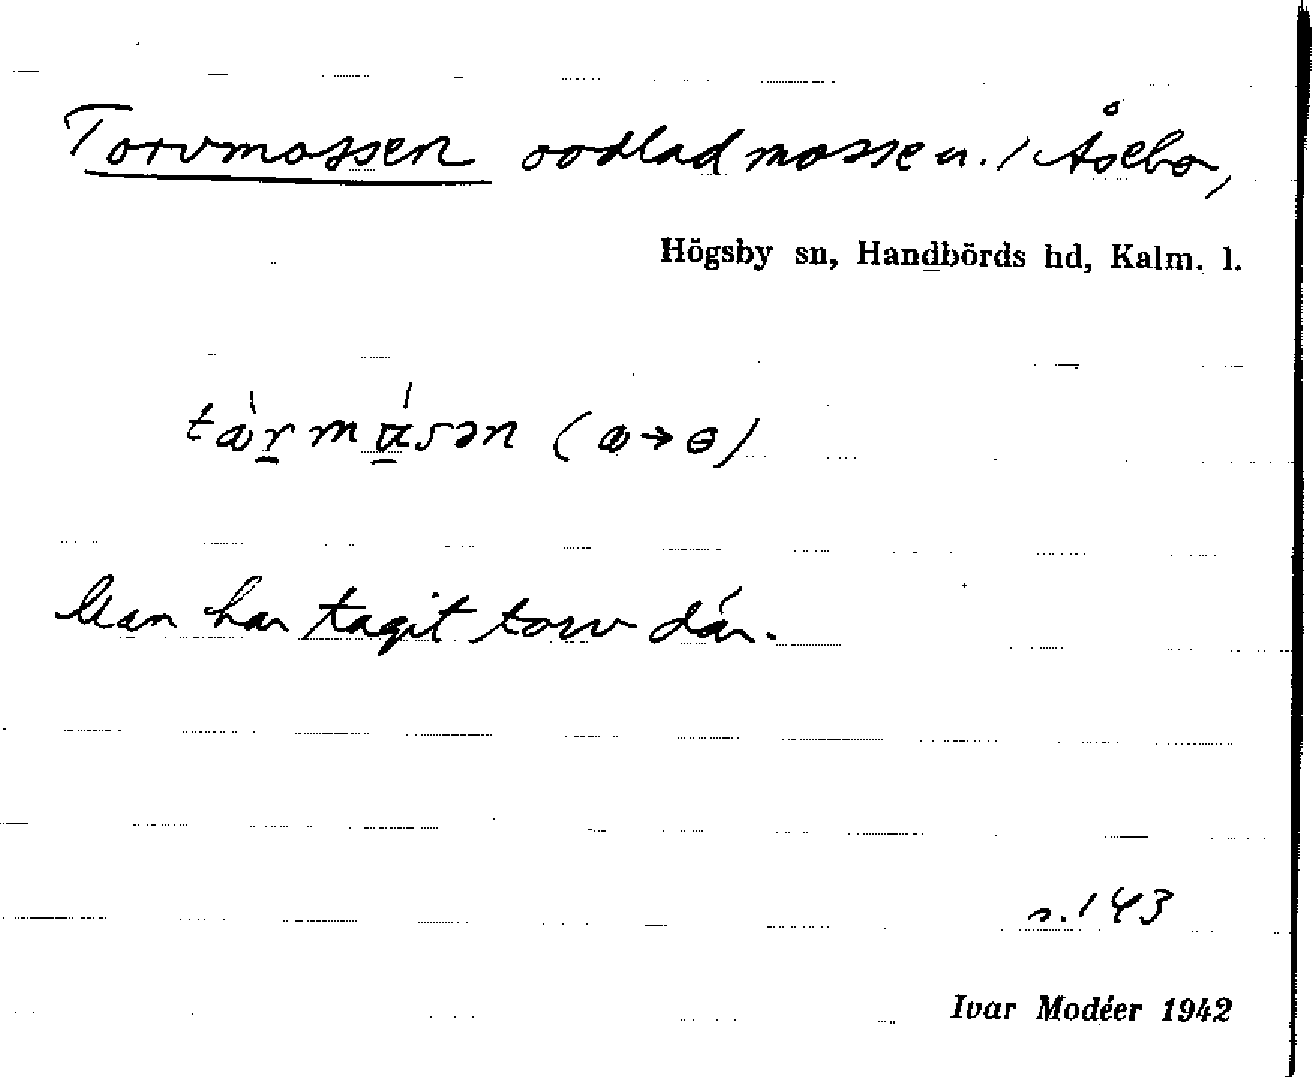 Torvmossen oodlad mosse u. 1 Åsebo,
Högsby sn, Handbörds hd, Kalm. l.
Man har tagit torv där.
s. 143
Ivar Modéer 1942